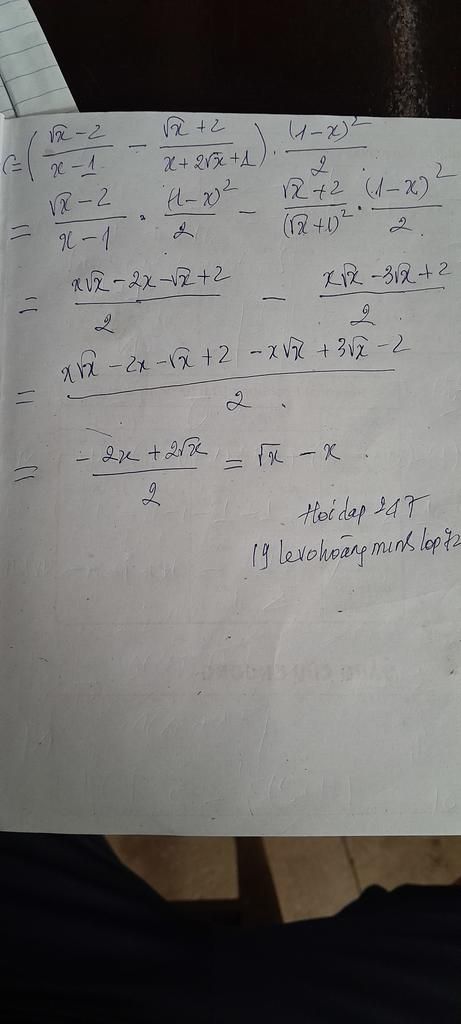 C = ( (√x − 2)/(x − 1) − (√x + 2)/(x + 2√x + 1) ) . (1 − x)²/2
= (√x − 2)/(x − 1) . (1 − x)²/2 − (√x + 2)/(√x + 1)² . (1 − x)²/2 .
= (x√x − 2x − √x + 2)/2 − (x√x − 3√x + 2)/2
= (x√x − 2x − √x + 2 − x√x + 3√x − 2)/2 .
= (−2x + 2√x)/2 = √x − x .
Hoidap 247
19 levohoàngminh lop 92